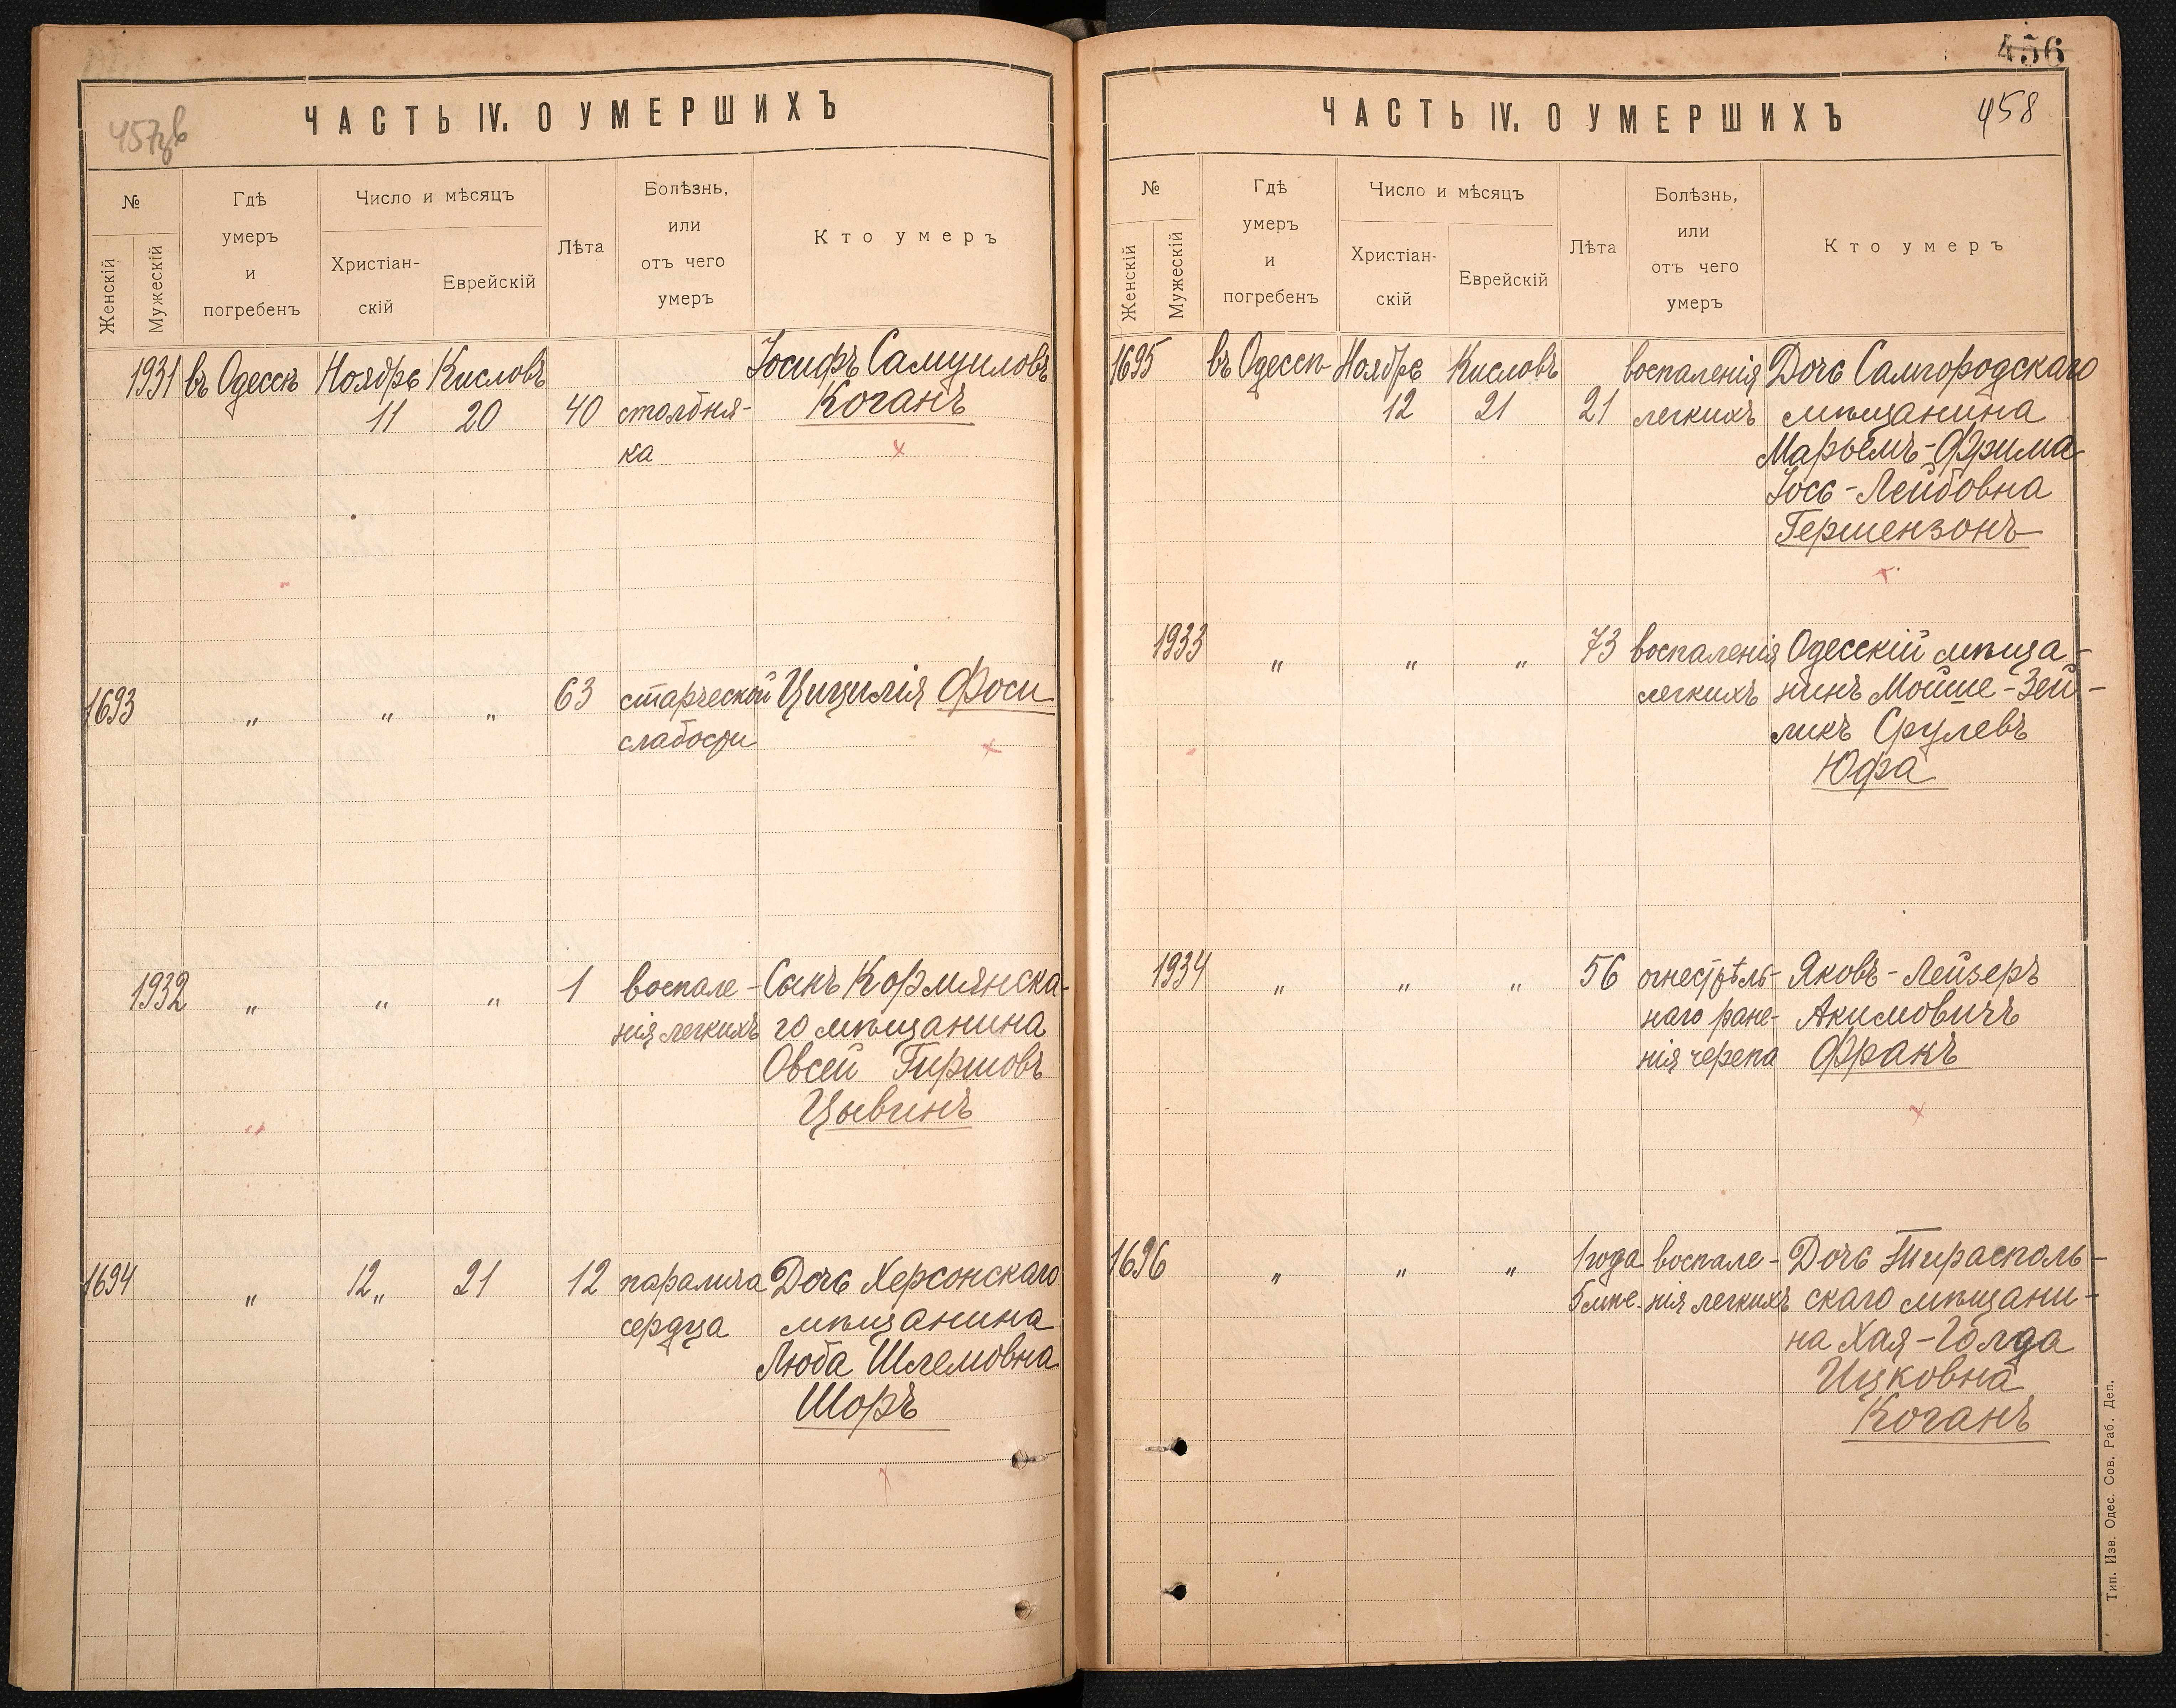 457 об
ЧАСТЬ IV. О УМЕРШИХЪ
№
Женскій
Мужескій
Гдѣ
умеръ
и
погребенъ
Число и мѣсяцъ
Христіан-
скій
Еврейскій
Лѣта
Болѣзнь,
или
отъ чего
умеръ
Кто умеръ
1931 въ Одессѣ Ноябрь Кисловъ Іосифъ Самуиловъ
11 20 40 столбня- Коганъ
ка
1693 " " " 63 старческой Цицилія Фоси
слабости
1932 " " " 1 воспале- Сынъ Кормянска-
нія легкихъ го мѣщанина
Овсей Гиршовъ
Цывинъ
1694 " 12 " 21 12 паралича Дочь Херсонскаго
сердца мѣщанина
Люба Шлемовна
Шоръ
456
458
ЧАСТЬ IV. О УМЕРШИХЪ
№
Женскій
Мужескій
Гдѣ
умеръ
и
погребенъ
Число и мѣсяцъ
Христіан-
скій
Еврейскій
Лѣта
Болѣзнь,
или
отъ чего
умеръ
Кто умеръ
1695 въ Одессѣ Ноябрь Кисловъ воспаленія Дочь Самгородскаго
12 21 21 легкихъ мѣщанина
Марьемъ-Фрима
Іось-Лейбовна
Гершензонъ
1933 " " " 73 воспаленія Одесскій мѣща-
легкихъ нинъ Мойше-Зей-
ликъ Срулевъ
Юфа
1934 " " " 56 огнестрѣль- Яковъ-Лейзеръ
наго ране- Акимовичъ
нія черепа Фракъ
1696 " " " 1 года воспале- Дочь Тирасполь-
5 мѣс. нія легкихъ скаго мѣщани-
на Хая-Голда
Ицковна
Коганъ
Тип. Изв. Одес. Сов. Раб. Деп.